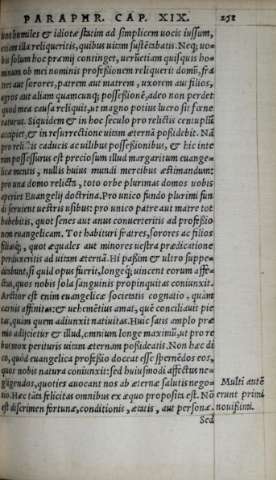 PARAPHR. CAP. XIX. 252
uos humiles & idiotæ statim ad simplicem uocis iussum,
etiam illa reliqueritis, quibus uitam sustētabatis. Neq; uo-
bis solum hoc præmij continget, uerùetiam quisquis ho-
minum ob mei nominis professionem reliquerit domū, fra
tres aut sorores, patrem aut matrem, uxorem aut filios,
agros aut aliam quamcunq; possessionē, adeo non perdet
quod mea causa reliquit, ut magno potius lucro sit fœne
ratura. Siquidem & in hoc seculo pro relictis centuplū
accipiet, & in resurrectione uitam æternā possidebit. Nā
pro relictis caducis ac uilibus possessionibus, & hic inte
rim possessurus est preciosum illud margaritum euange-
licæ mentis, nullis huius mundi mercibus æstimandum:
pro una domo relicta, toto orbe plurimas domos uobis
aperiet Euangelij doctrina. Pro unico fundo plurimi fun
di seruient uestris usibus: pro unico patre aut matre tot
habebitis, quot senes aut anus conuerteritis ad professio
nem euangelicam. Tot habituri fratres, sorores ac filios
filiasq;, quot æquales aut minores uestra prædicatione
perduxeritis ad uitam æternā. Hi passim & ultro suppe-
ditabunt, si quid opus fuerit, longeq; uincent eorum affe-
ctus, quos nobis sola sanguinis propinquitas coniunxit.
Arctior est enim euangelicæ societatis cognatio, quàm
carnis affinitas: & uehemētius amat, quē conciliauit pie
tas, quàm quem adiunxit natiuitas. Huic satis amplo præ
mio adijcietur & illud, omnium longe maximū, ut pro re
bus mox perituris uitam æternam possideatis. Non hæc di
co, quòd euangelica professio doceat esse spernēdos eos,
quos nobis natura coniunxit: sed huiusmodi affectus ne-
gligendos, quoties auocant nos ab æternæ salutis nego
tio. Hæc tāta felicitas omnibus ex æquo proposita est. Nō
est discrimen fortunæ, conditionis, ætatis, aut personæ.
Sed
Multi autē
erunt primi
nouissimi.